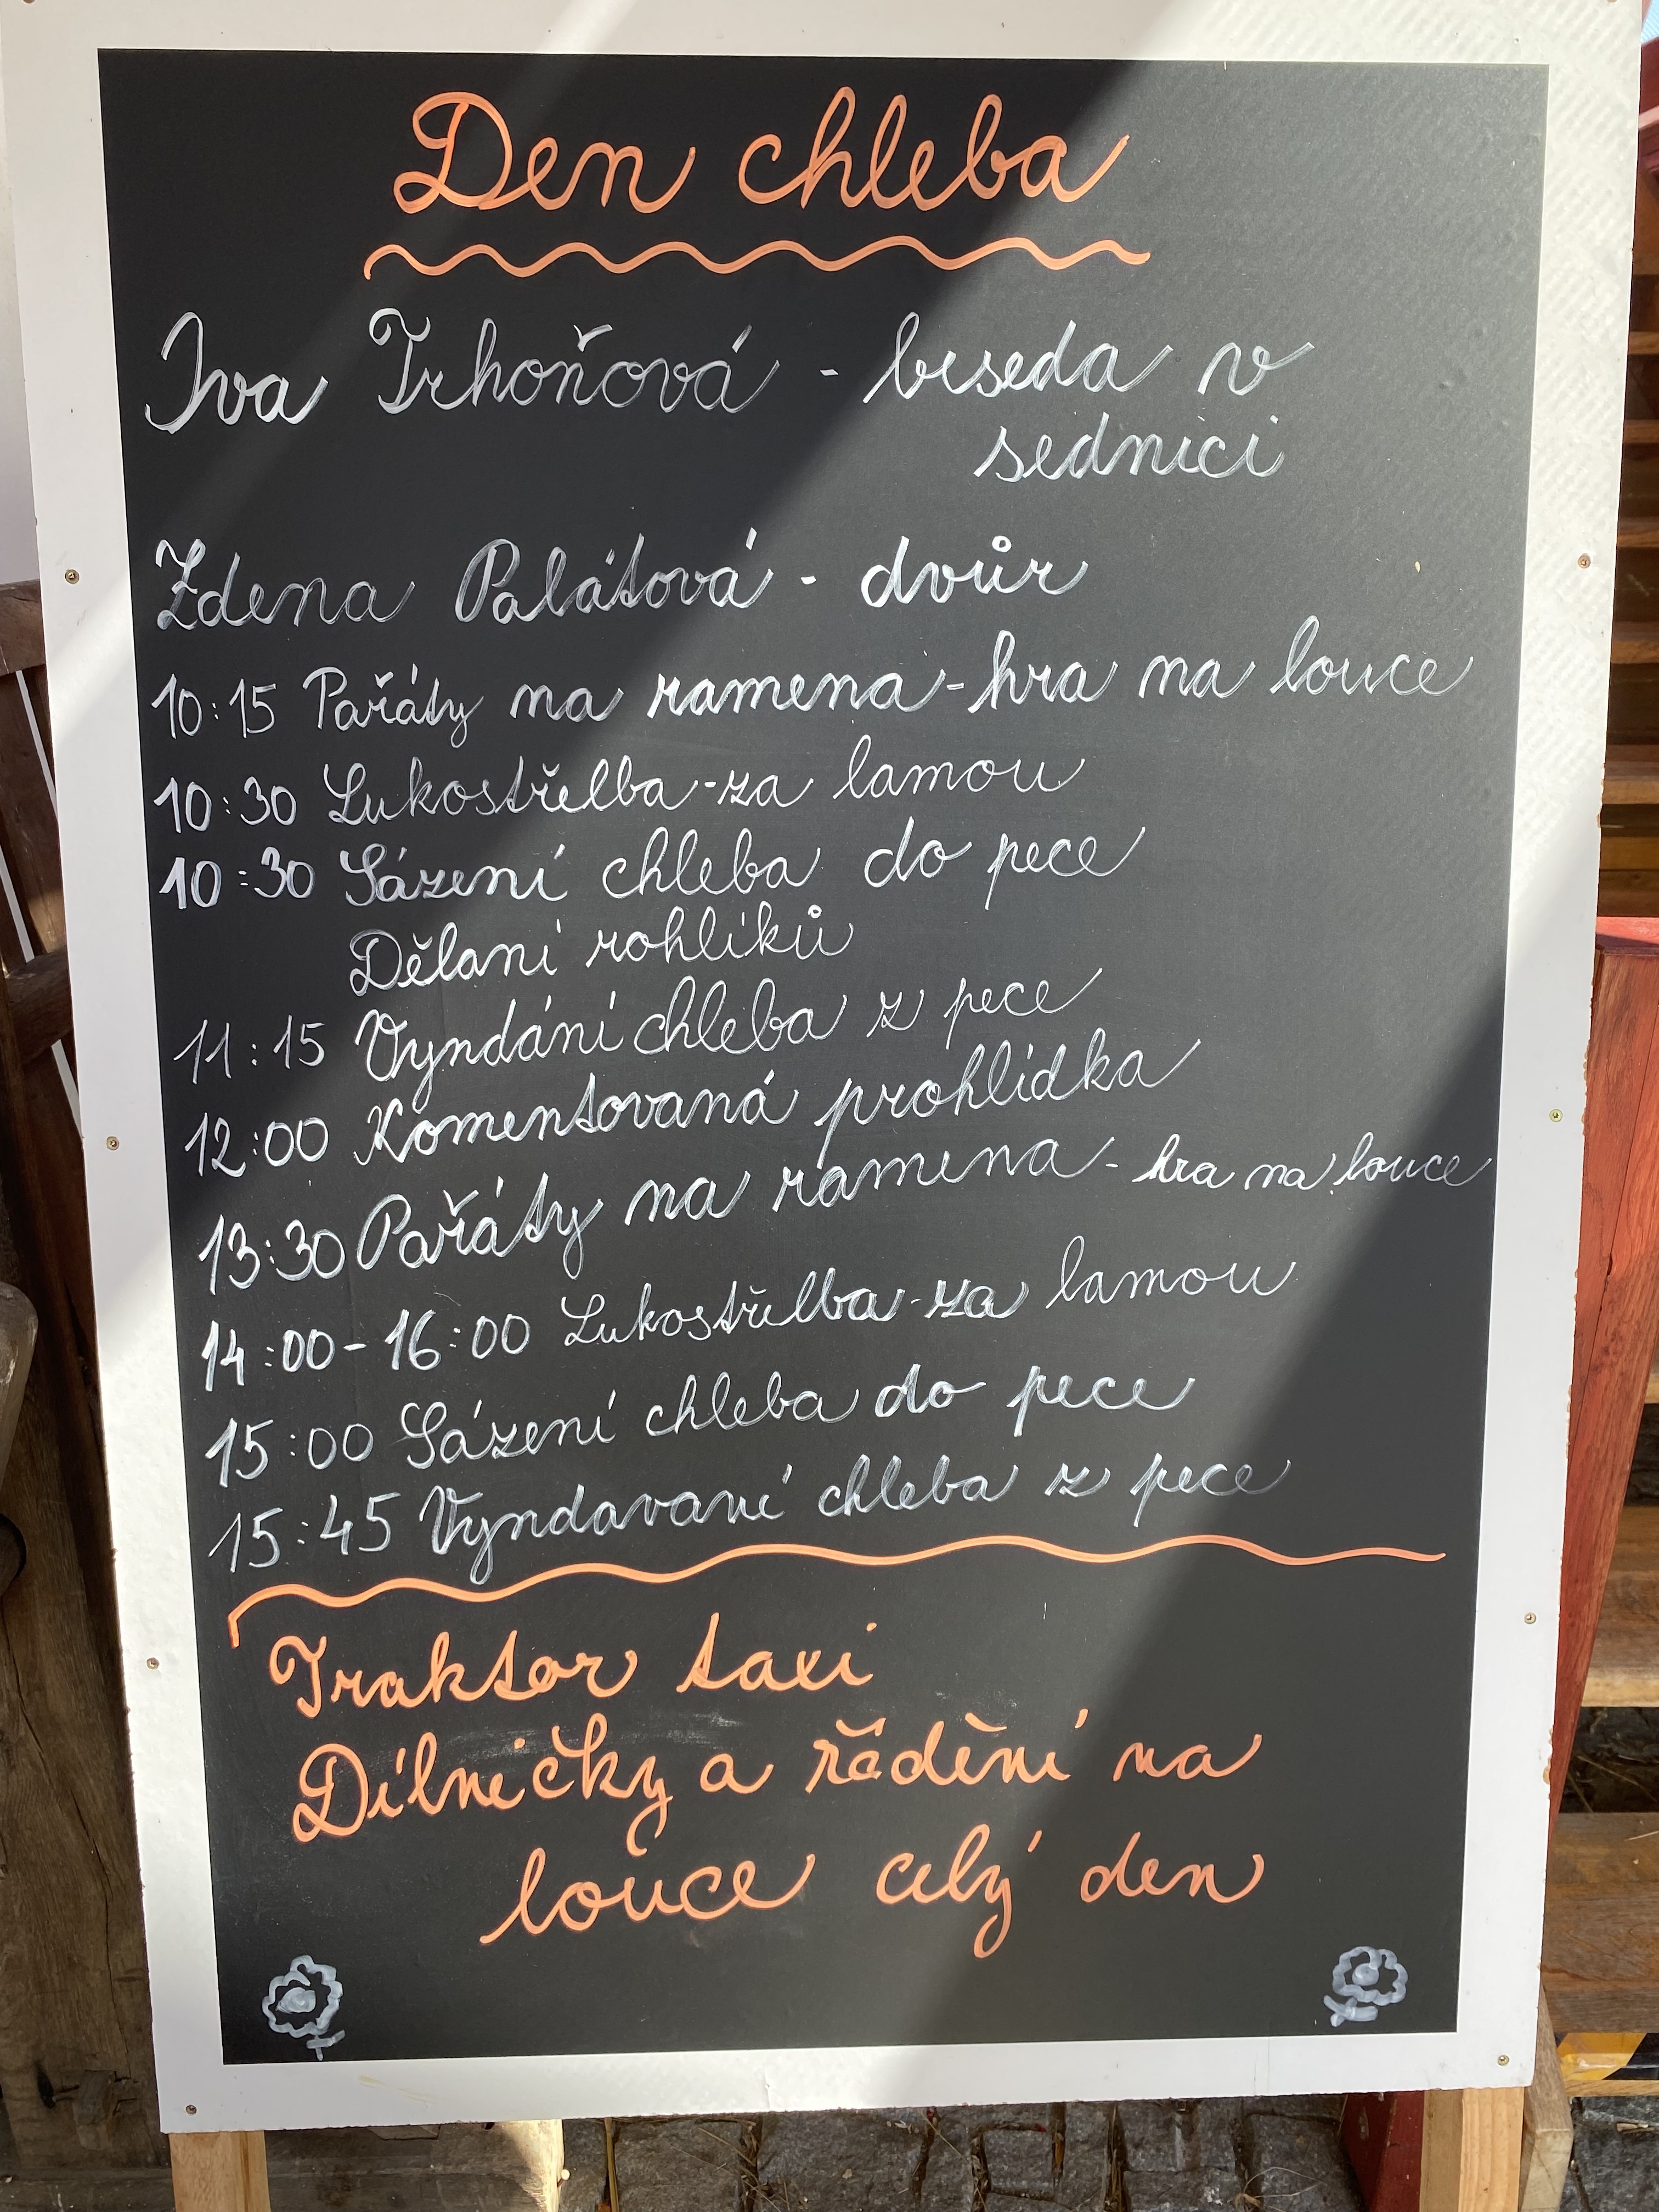 Den chleba
Iva Trhoňová - beseda v
sednici
Zdena Palátová - dvůr
10:15 Pařáty na ramena - hra na louce
10:30 Lukostřelba - za lamou
10:30 Sázení chleba do pece
Dělaní rohlíků
11:15 Vyndání chleba z pece
12:00 Komentovaná prohlídka
13:30 Pařáty na ramena - hra na louce
14:00 - 16:00 Lukostřelba - za lamou
15:00 Sázení chleba do pece
15:45 Vyndavaní chleba z pece
Traktor taxi
Dílničky a řádění na
louce celý den